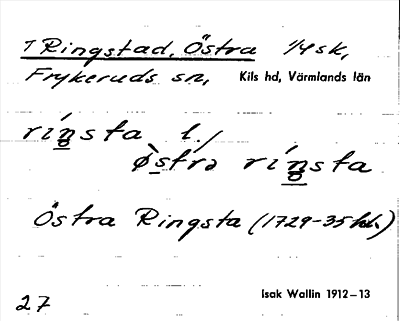 ⊤ Ringstad, Östra 1/4 sk,
Frykeruds sn, Kils hd, Värmlands län
ríŋsta l. /
ø̀strə ríŋsta
Östra Ringsta (1729-35 hh.)
27 Isak Wallin 1912–13